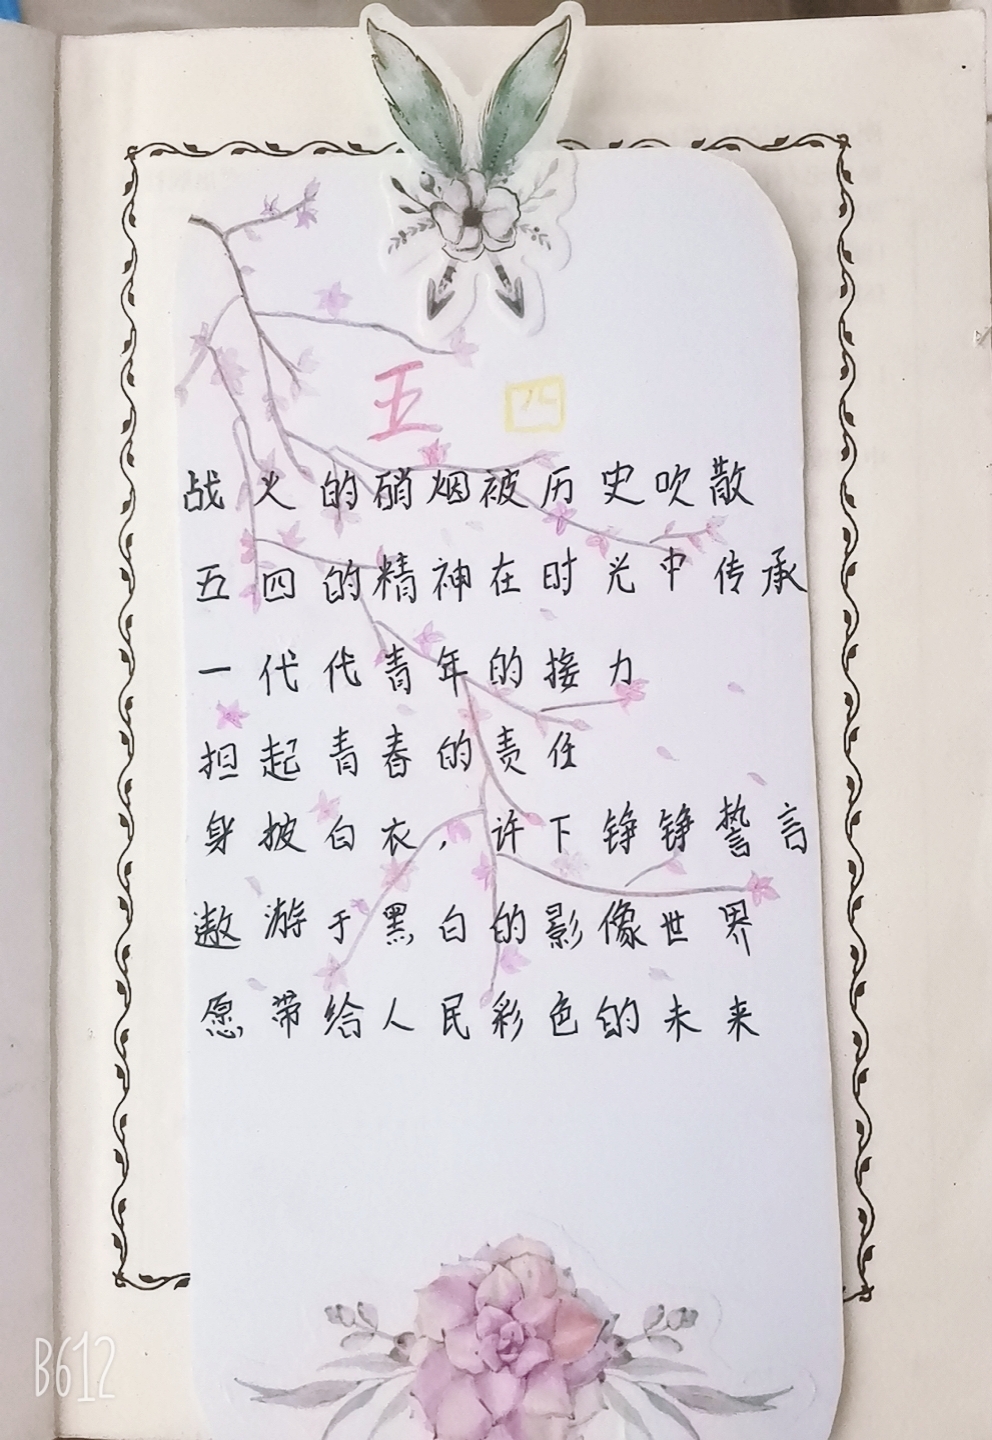 五四
战火的硝烟被历史吹散
五四的精神在时光中传承
一代代青年的接力
担起青春的责任
身披白衣，许下铮铮誓言
遨游于黑白的影像世界
愿带给人民彩色的未来
B612